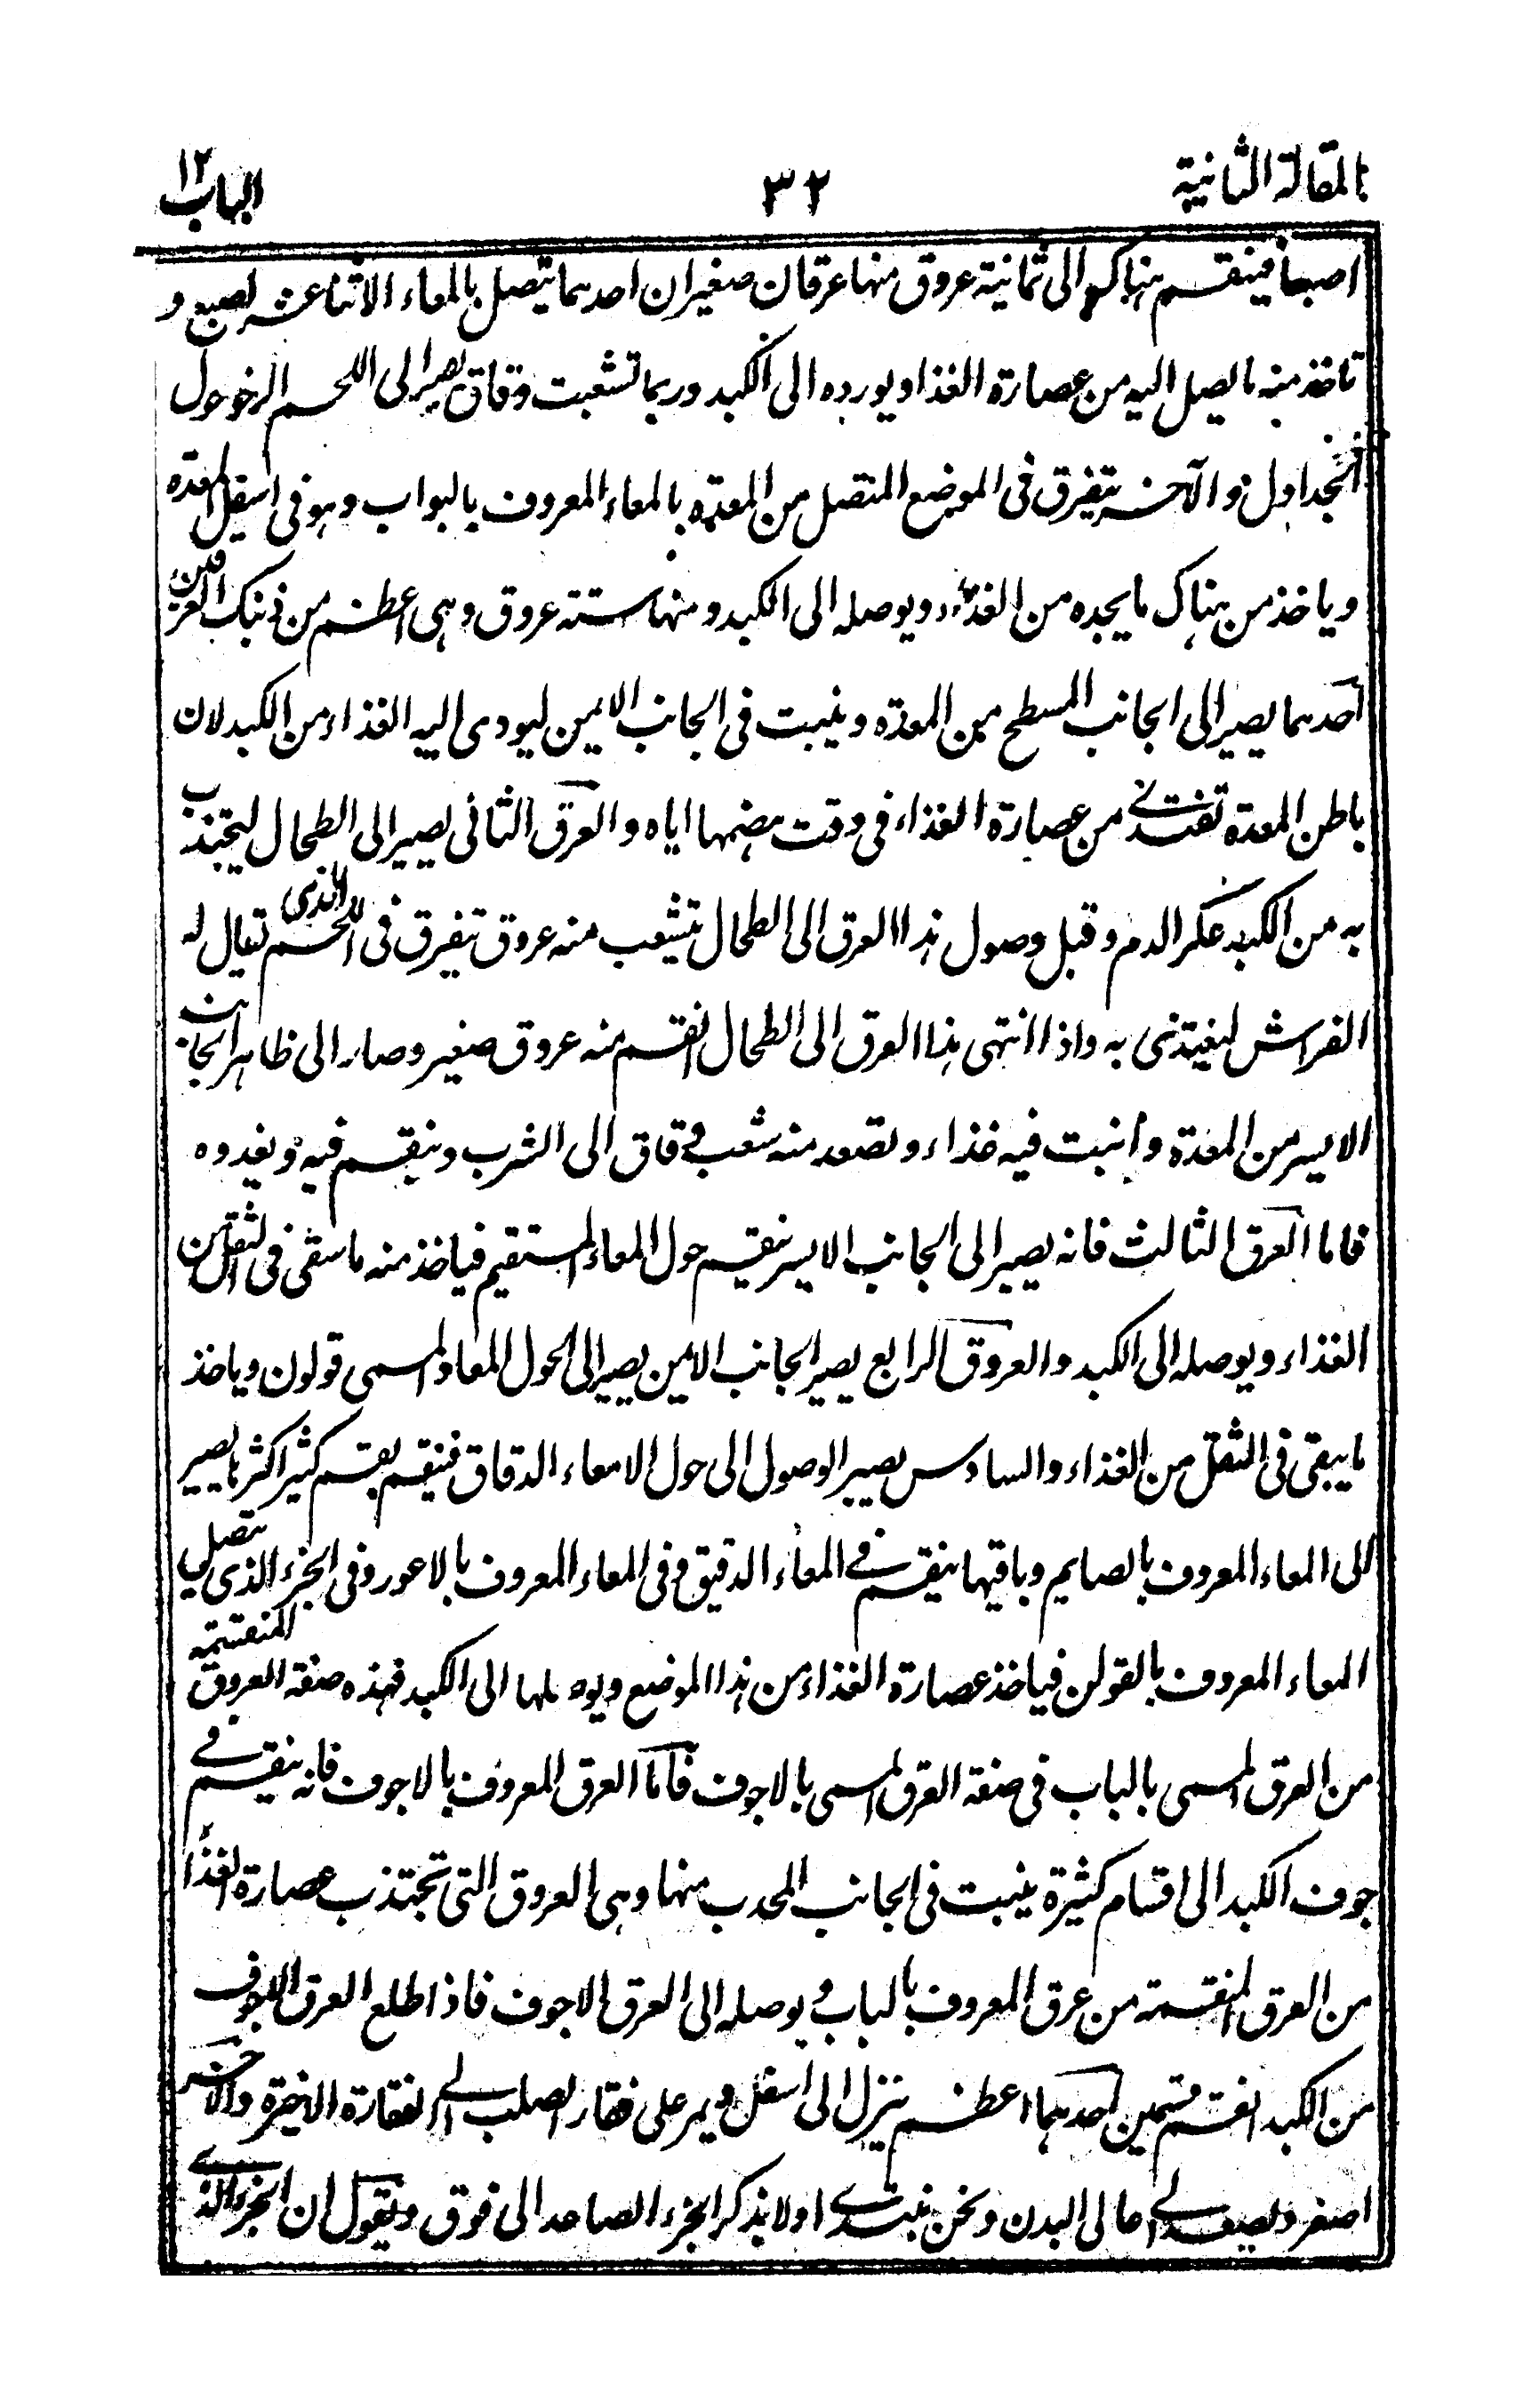 المقالة الثانية
٣٢
الباب ١٢
اصبعا فينقسم هناك الى ثمانية عروق منها عرقان صغيران احدهما يتصل بالمعاء الاثنا عشر اصبع و
تاخذ منه ما يصل اليه من عصارة الغذا ويورده الى الكبد وربما تشعبت دقاق يصير الى اللحم الرخو حول
الجداول والآخر يتفرق فى الموضع المتصل من المعدة بالمعاء المعروف بالبواب وهو فى اسفل المعدة
وياخذ من هناك ما يجده من الغذاء ويوصله الى الكبد ومنها ستة عروق وهى اعظم من ذينك العرقين
احدهما يصير الى الجانب المسطح من المعدة وينبت فى الجانب الايمن ليودى اليه الغذاء من الكبد لان
باطن المعدة تغتذى من عصارة الغذاء فى وقت هضمها اياه والعرق الثانى يصير الى الطحال ليجتذب
به من الكبد عكر الدم وقبل وصول هذا العرق الى الطحال يتشعب منه عروق تتفرق فى اللحم الذى يقال له
الفراش ليغتذى به واذا انتهى هذا العرق الى الطحال انقسم منه عروق صغير وصار الى ظاهر الجانب
الايسر من المعدة وانبت فيه غذاء وتصعد منه شعب دقاق الى الثرب وينقسم فيه ويغدوه
فاما العرق الثالث فانه يصير الى الجانب الايسر ينقسم حول المعاء المستقيم فياخذ منه ما يبقى فى الثقل من
الغذاء ويوصله الى الكبد والعروق الرابع يصير الجانب الايمن يصير الى الحول المعاء المسمى قولون وياخذ
ما يبقى فى الثقل من الغذاء والسادس يصير الوصول الى حول الامعاء الدقاق فينقسم بقسم كثير اكثرها يصير
الى المعاء المعروف بالصايم وباقيها ينقسم فى المعاء الدقيق وفى المعاء المعروف بالاعور وفى الجزء الذى يتصل
المعاء المعروف بالقولن فياخذ عصارة الغذاء من هذا الموضع ويوصلها الى الكبد فهذه صفة العروق المنقسمة
من العرق المسمى بالباب فى صفة العرق المسمى بالاجوف فاما العرق المعروف بالاجوف فانه ينقسم فى
جوف الكبد الى اقسام كثيرة ينبت فى الجانب المحدب منها وهى العروق التى تجتذب عصارة الغذا
من العرق المنقسمة من عرق المعروف بالباب ويوصله الى العرق الاجوف فاذا طلع العرق الاجوف
من الكبد انقسم قسمين احدهما اعظم ينزل الى اسفل ويمر على فقار الصلب الى الفقارة الاخيرة والآخر
اصغر ويصعد الى اعالى البدن ونحن نبتدى اولا بذكر الجزء الصاعد الى فوق ونقول ان الجزء الذى